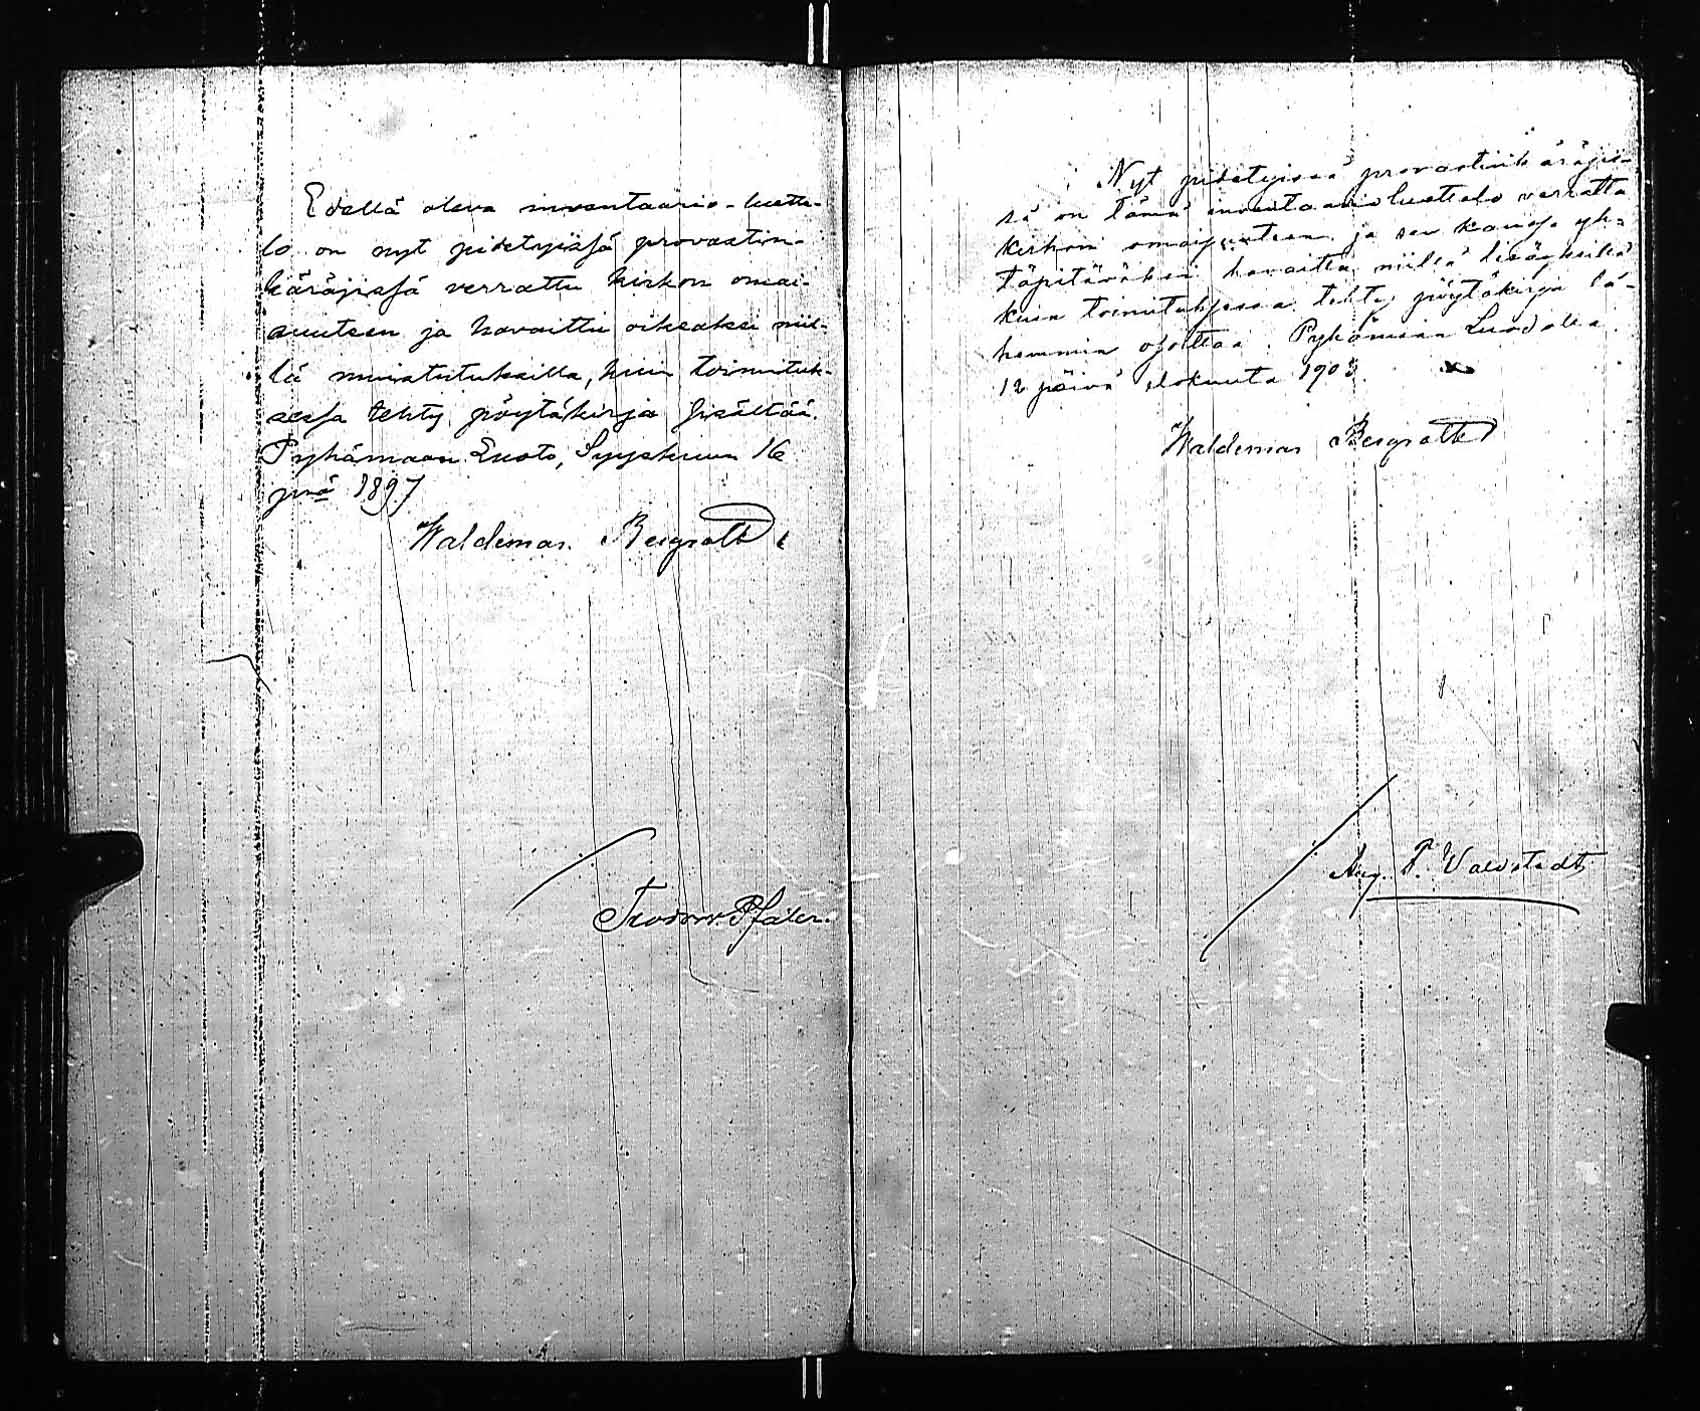 Edellä oleva inventaario-luette-
lo on nyt pidetyissä provastin-
käräjissä verrattu kirkon omai-
suuteen ja havaittu oikeaksi niil-
lä muistutuksilla, kuin toimituk-
sessa tehty pöytäkirja sisältää.
Pyhämaan Luoto, Syyskuun 16
pnä 1897
Waldemar Bergroth
Teodor Pfaler.
Nyt pidetyissä provastinkäräjis-
sä on tämä inventaarioluettelo verrattu
kirkon omaisuuteen ja sen kanssa yh-
täpitäväksi havaittu niillä lisäyksillä
kuin toimituksessa tehty pöytäkirja lä-
hemmin osottaa. Pyhämaan Luodolla
12 päivä elokuuta 1903.
Waldemar Bergroth
Aug. P. Valvstedt